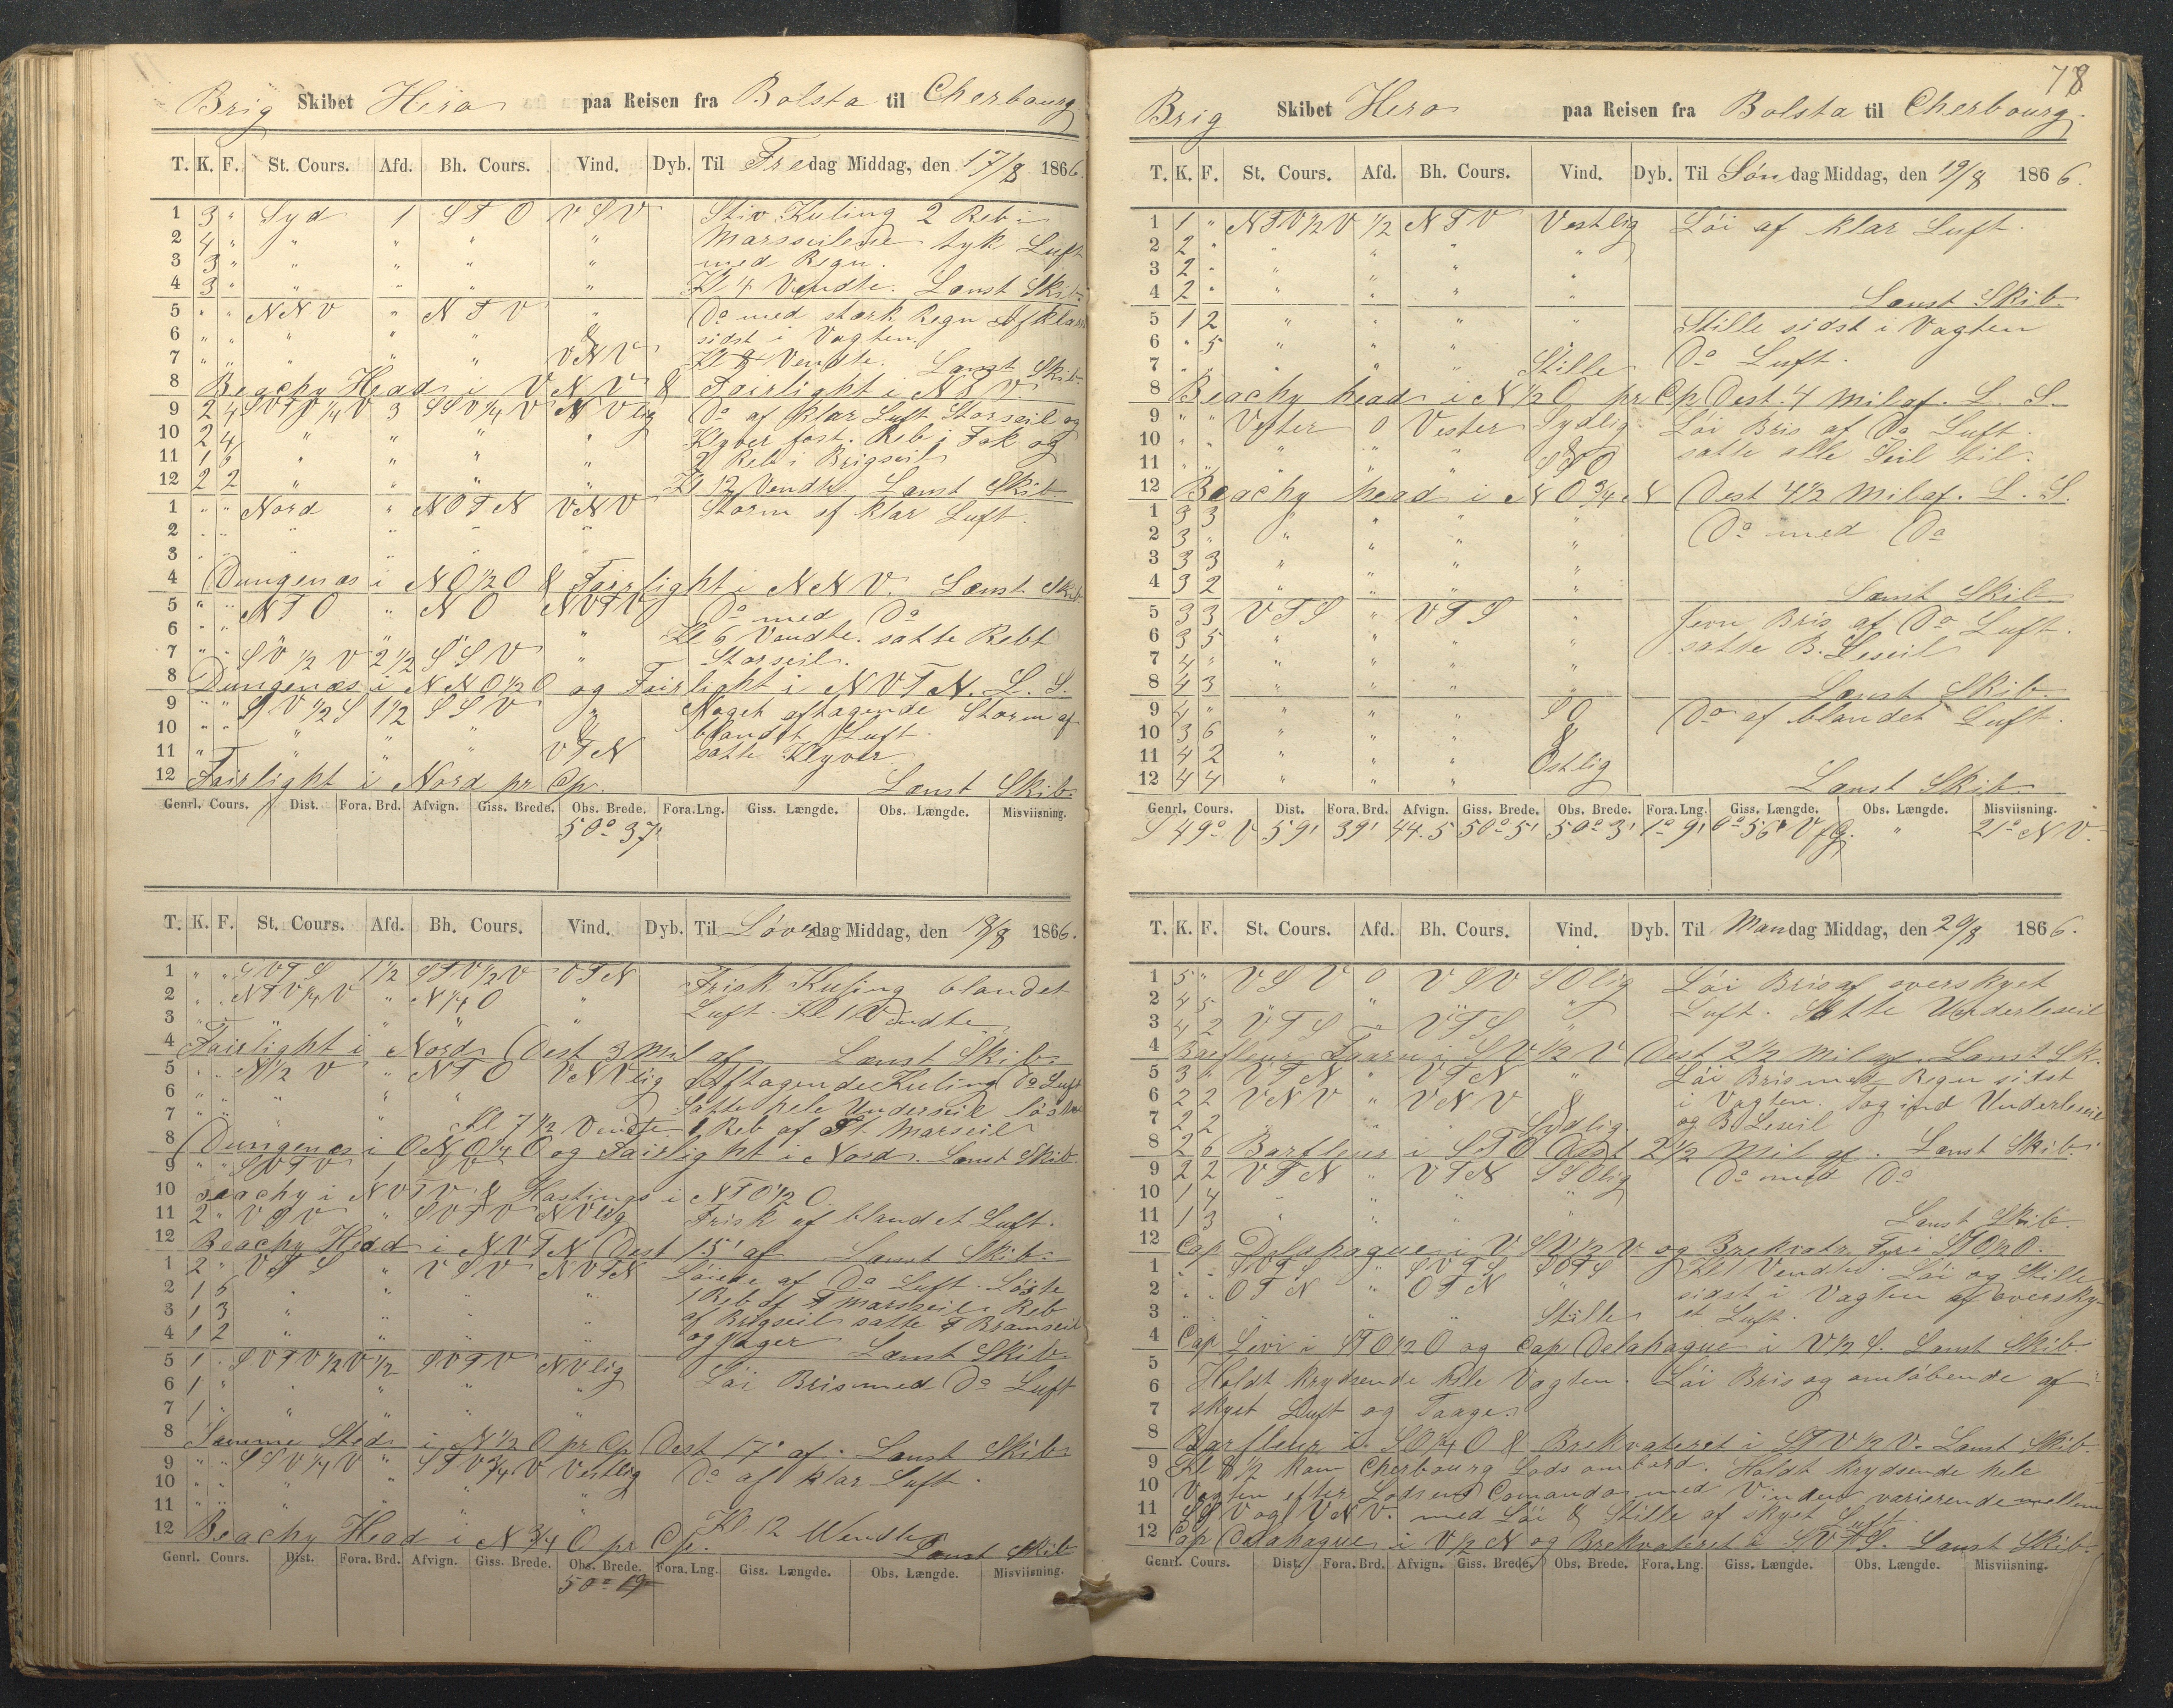 Brig Skibet Hero paa Reisen fra Bolsta til Cherbourg
T. K. F. St. Cours. Afd. Bh. Cours. Vind. Dyb. Til Fredag Middag, den 17/8 1866.
1 3 " Syd 1 STO VSV Stiv Kuling 2 Reb i
2 4 " " " " " Marsseilene tyk Luft
3 3 " " " " " med Regn.
4 3 " " " " " Kl 4 Vendte. Lænst Skib
5 " " NNV " NTV " Do med stærk Regn Afklar
6 " " " " " & sidst i Vagten
7 " " " " " VNV Kl 8 Vendte. Lænst Skib
8 Beachy Head i VNV & Fairlight i NTV.
9 2 4 SVTV 1/4 V 3 SSV 1/4 V NVlig Do af klar Luft Storseil og
10 2 4 " " " " Klyver fast. Reb i Fok og
11 1 2 " " " " 2 Reb i Brigseil
12 2 2 " " " " Kl 12 Vendte Lænst Skib
1 " " Nord " NOTN VNV Storm af klar Luft.
2 " " " " "
3 " " " " "
4 Dungenæs i NO 1/2 O & Fairlight i NNV. Lænst Skib
5 " " NTO " NO NVTV Do med Do
6 " " " Kl 6 Vendte. satte Rebt
7 " " SV 1/2 V 2 1/2 SSV " Storseil.
8 Dungenæs i NNO 1/2 O og Fairlight i NVTN. L. S.
9 " " SV 1/2 S 1 1/2 SSV " Noget aftagende Storm af
10 " " " " " & blandet Luft.
11 " " " VTN satte Klyver
12 Fairlight i Nord pr Cp. Lænst Skib.
Genrl. Cours. Dist. Fora. Brd. Afvign. Giss. Brede. Obs. Brede. Fora. Lng. Giss. Længde. Obs. Længde. Misviisning.
50° 37'
T. K. F. St. Cours. Afd. Bh. Cours. Vind. Dyb. Til Løverdag Middag, den 18/8 1866.
1 " " SVTS 1 1/2 STV 1/2 V VTN Frisk Kuling blandet
2 " " NTV 1/4 V " N 1/4 O " Luft. Kl 1 Vendte
3 " " " " " "
4 Fairlight i Nord Dest 3 Mil af Lænst Skib
5 " " N 1/2 V " NTO VNVlig Aftagende Kuling Do Luft
6 " " " " " Satte hele Underseil
7 " " " Kl 7 1/2 Vendte 1 Reb af St. Marseil
8 Dungenæs i ONO 1/4 O og Fairlight i Nord. Lænst Skib
9 " " SVTV 1 SV
10 Beachy i NVTV & Hastings i NTO 1/2 O.
11 2 " VSV " SVTV NVlig Frisk af blandet Luft.
12 Beachy Head i NVTN Dest 15' af Lænst Skib.
1 2 " VTS " VSV NVTN Løiede af Do Luft. Løste
2 1 6 " " " " 1 Reb af F Marsseil. Reb
3 1 3 " " " " af Brigseil satte F Bramseil
4 1 2 " " " " og Jager Lænst Skib
5 1 " SVTV 1/2 V 1/2 SVTV NVlig Løi Bris med Do Luft
6 1 " " " " "
7 1 " " " " "
8 Samme Sted i N 1/2 O pr Cp Dest 17' af. Lænst Skib
9 " " SSV 1/4 V " STV 3/4 V Vestlig Do af klar Luft.
10 " " " " " "
11 " " " " "
12 Beachy Head i N 3/4 O pr Cp. Kl 12 Vendte Lænst Skib
Genrl. Cours. Dist. Fora. Brd. Afvign. Giss. Brede. Obs. Brede. Fora. Lng. Giss. Længde. Obs. Længde. Misviisning.
50° 19
78
Brig Skibet Hero paa Reisen fra Bolsta til Cherbourg.
T. K. F. St. Cours. Afd. Bh. Cours. Vind. Dyb. Til Søndag Middag, den 19/8 1866.
1 1 " NTV 1/2 V 1/2 NTV Vestlig Løi af klar Luft.
2 2 " " " "
3 2 " " " " "
4 2 " " " " " Lænst Skib
5 1 2 " " " " Stille sidst i Vagten
6 " 5 " " " Do Luft.
7 " " " " " Stille
8 Beachy head i N 1/2 O pr Cp Dest. 4 Mil af. L. S.
9 " " Vester 0 Vester Sydlig Løi Bris af Do Luft.
10 " " " " " & satte alle Seil til.
11 " " " " " STO
12 Beachy head i NO 3/4 N Dest 4 1/2 Mil af. L. S.
1 3 3 " " " " Do med Do
2 3 " " " " "
3 3 3 " " " "
4 3 2 " " " " Lænst Skib
5 3 3 VTS " VTS " Jevn Bris af Do Luft.
6 3 5 " " " " satte B. Leseil
7 4 " " " " "
8 4 3 " " " " Lænst Skib.
9 4 " " " " SO Do af blandet Luft.
10 3 6 " " " &
11 4 2 " " " Østlig
12 4 4 " " " Lænst Skib
Genrl. Cours. Dist. Fora. Brd. Afvign. Giss. Brede. Obs. Brede. Fora. Lng. Giss. Længde. Obs. Længde. Misviisning.
S 49° V 59' 39' 44.5 50° 5' 50° 3' 1° 9' 0° 56' V f G. " 21° NV.
T. K. F. St. Cours. Afd. Bh. Cours. Vind. Dyb. Til Mandag Middag, den 20/8 1866.
1 5 " VSV 0 VSV SOlig Løi Bris af overskyet
2 4 5 " " " " Luft. Satte Underleseil
3 4 2 VTS " VTS "
4 Barfleur Taarn i SV 1/2 V Dest 2 1/2 Mil af. Lænst Sk.
5 3 " VTN " VTN " Løi Bris med Regn sidst
6 2 2 VNV " VNV & i Vagten. Tog ind Underleseil
7 2 2 " " " Sydlig og B. Leseil
8 2 6 Barfleur i STO Dest 2 1/2 Mil af. Lænst Skib.
9 2 2 VTN " VTN SSOlig Do med Do
10 1 4 " " " "
11 1 3 " " " Lænst Skib.
12 Cap Delahague i VSV 1/2 V og Brekvatr Fyr i STO 1/2 O.
1 " " SVTS " SVTS SOTS Kl 1 Vendte. Løi og Stille
2 " " OTN " OTN " sidst i Vagten af oversky-
3 " " " " " Stille et Luft.
4 Cap Levi i STO 1/2 O og Cap Delahague i V 1/2 S. Lænst Skib.
5 Holdt krydsende hele Vagten. Løi Bris og omløbende af
6
7 skyet Luft og Taage.
8 Barfleur i SO 3/4 O & Brekvateret i STV 1/2 V. Lænst Skib.
9 Kl 8 1/2 kom Cherbourg Lods ombord. Holdt krydsende hele
10 Vagten efter Lodsens Comando med Vinden varierende mellem
11 SSV og VNV. med Løi & Stille af skyet Luft.
12 Cap Delahague i V 1/2 N og Brekvateret i SVTS. Lænst Skib.
Genrl. Cours. Dist. Fora. Brd. Afvign. Giss. Brede. Obs. Brede. Fora. Lng. Giss. Længde. Obs. Længde. Misviisning.